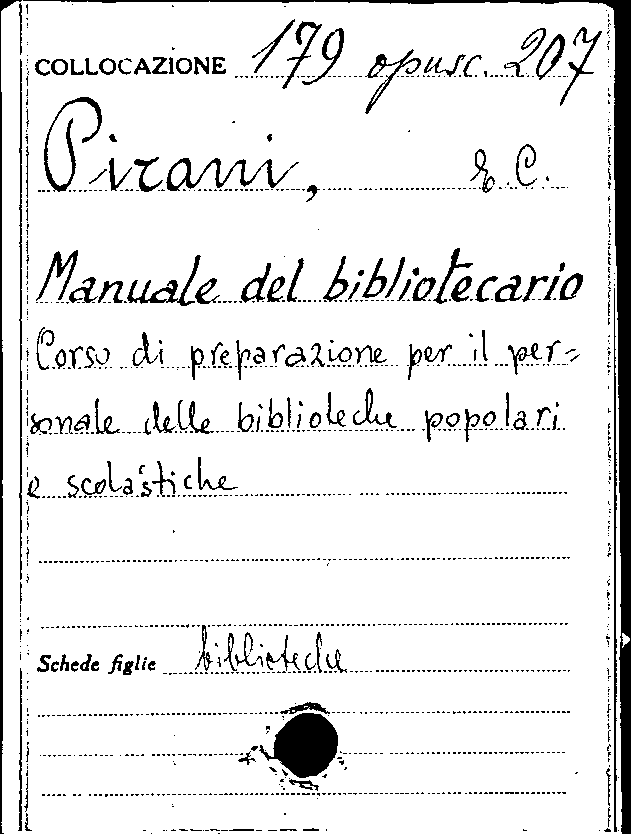 COLLOCAZIONE 179 opusc. 207
Pirani, E. C.
Manuale del bibliotecario
Corso di preparazione per il per=
sonale delle biblioteche popolari
e scolastiche
Schede figlie biblioteche